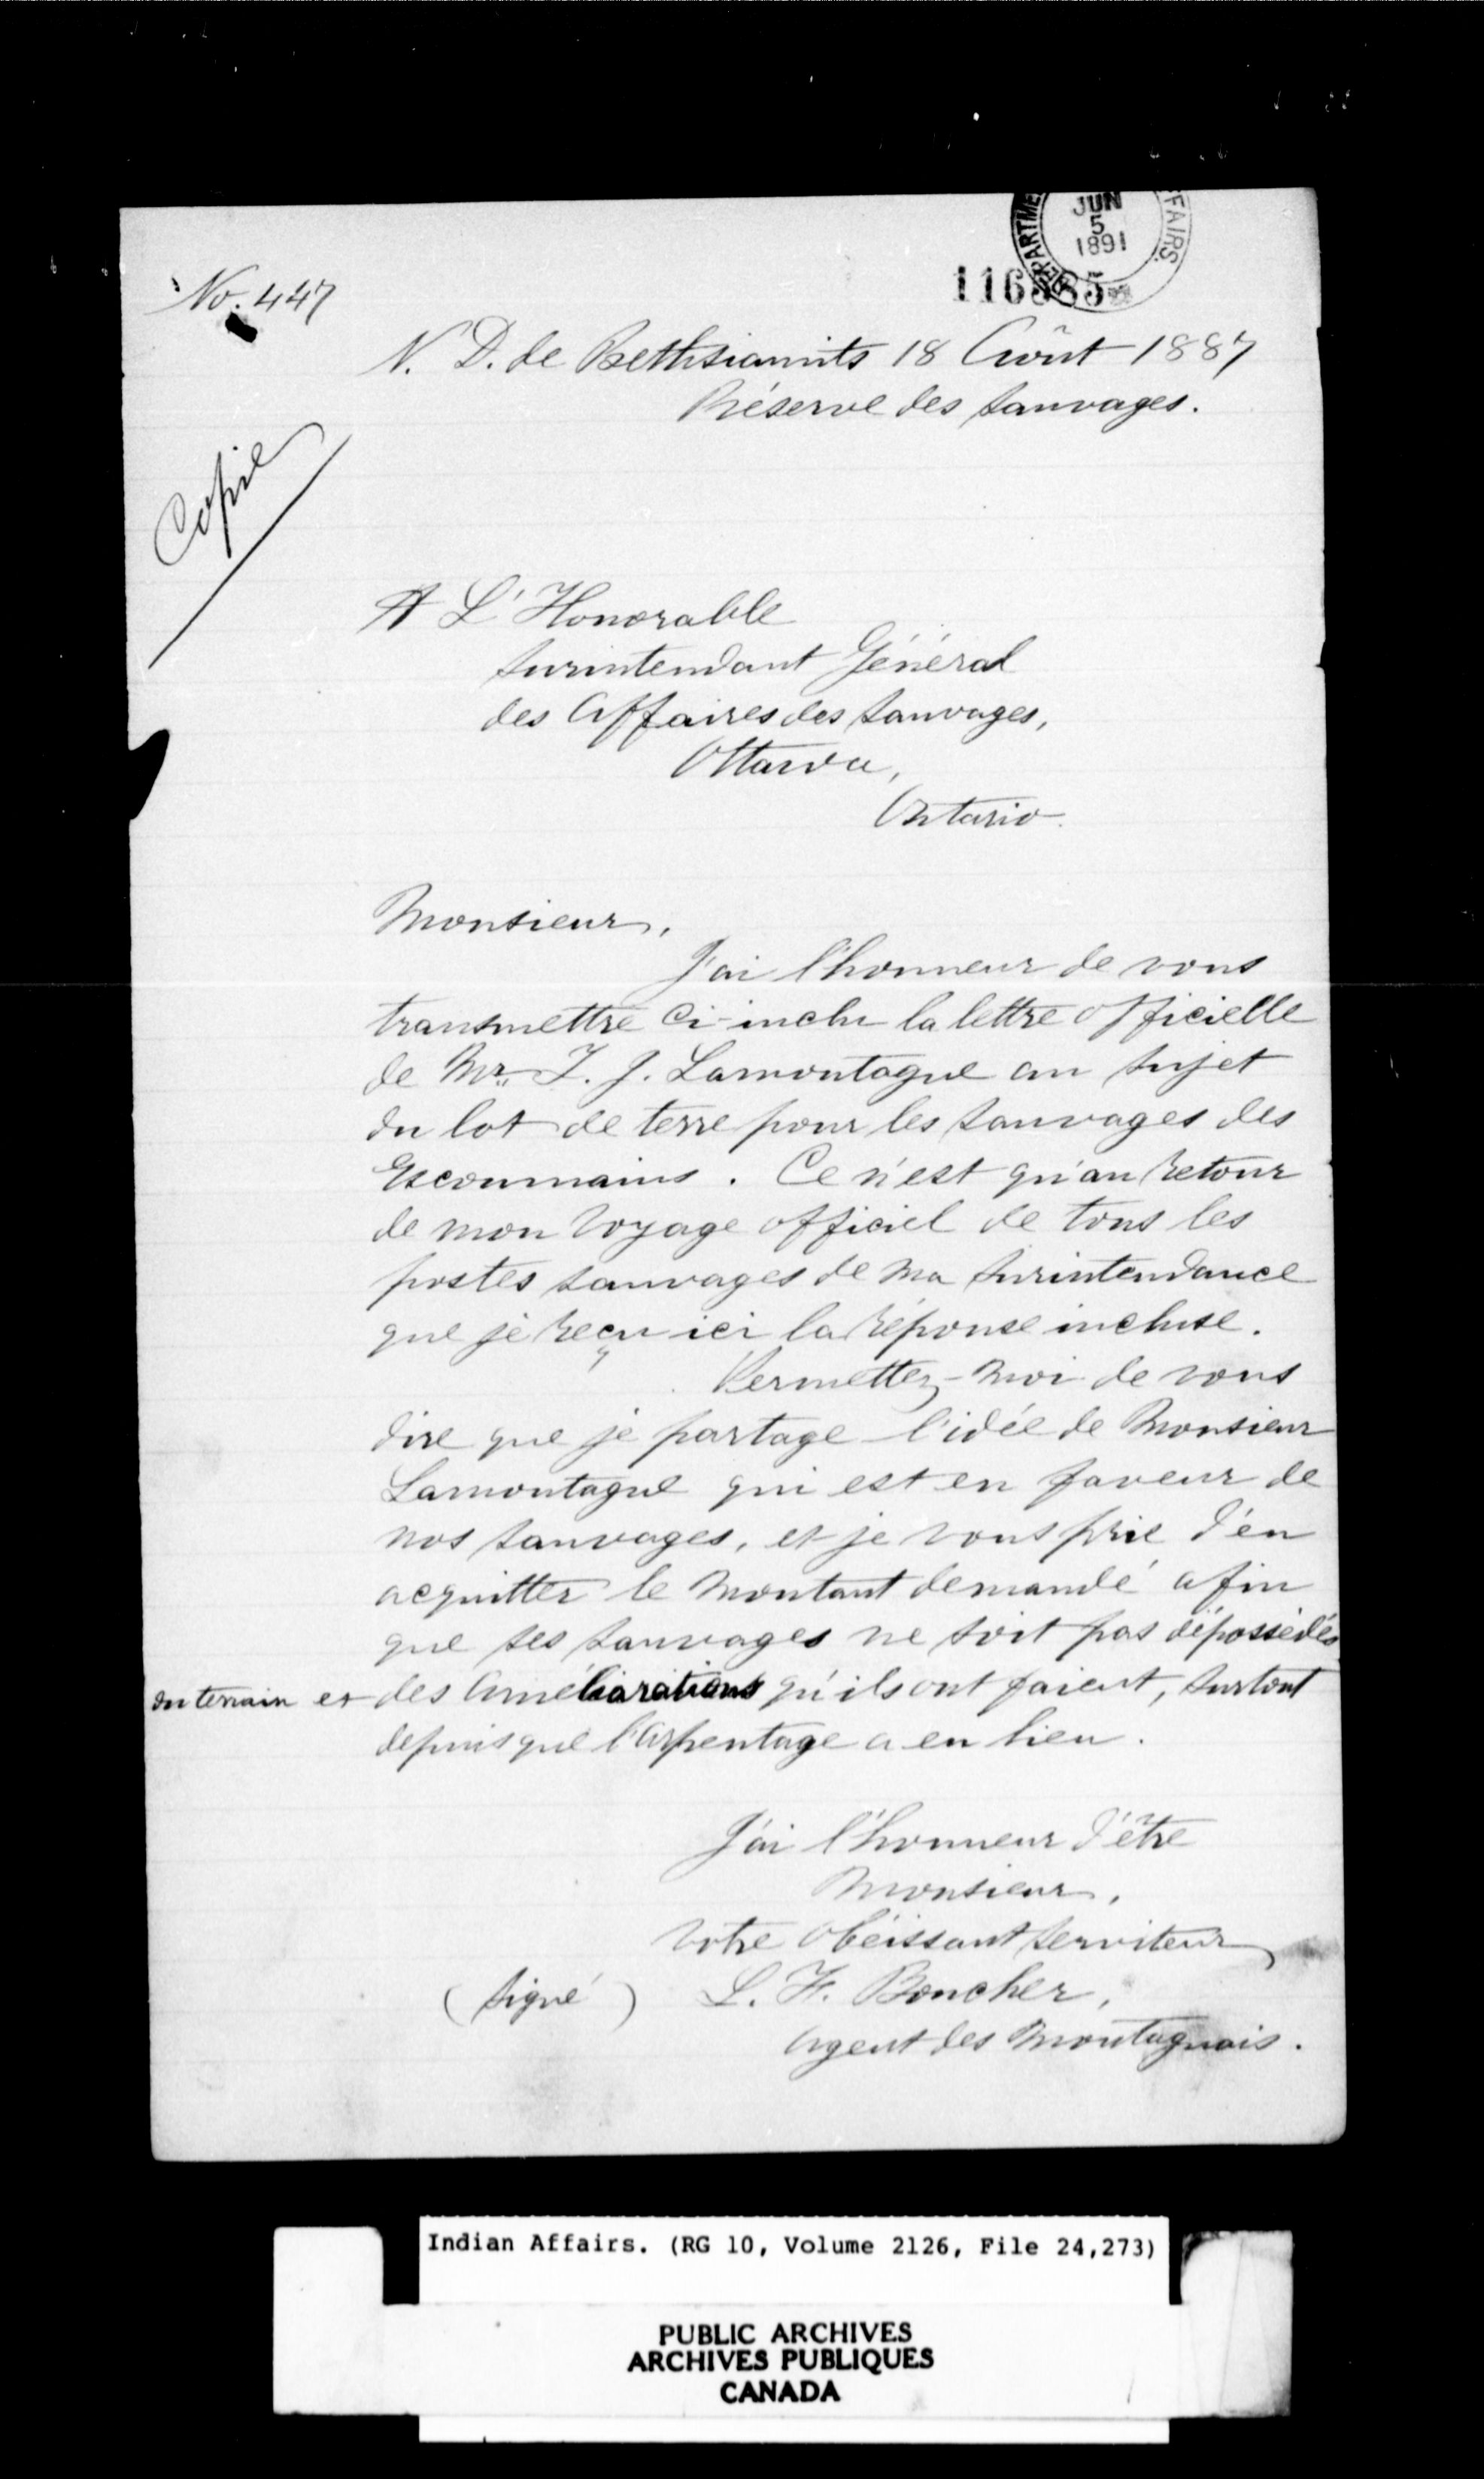 DEPARTME
JUN
5
1891
FFAIRS.
116585
No. 447
N. D. de Bethsiamits 18 Août 1887
Réserve des Sauvages.
Copie
A L'Honorable
Surintendant Général
des Affaires des Sauvages,
Ottawa,
Ontario.
Monsieur,
J'ai l'honneur de vous
transmettre ci-inclu la lettre officielle
de Mr. T. J. Lamontagne au sujet
du lot de terre pour les Sauvages des
Escoumains. Ce n'est qu'au retour
de mon voyage officiel de tous les
postes sauvages de ma Surintendance
que je reçu ici la réponse incluse.
Permettez-moi de vous
dire que je partage l'idée de Monsieur
Lamontagne qui est en faveur de
nos Sauvages, et je vous prie d'en
acquitter le montant demandé afin
que ses Sauvages ne soit pas dépossédés
du terrain et des améliarations qu'ils ont faient, surtout
depuis que l'arpentage a eu lieu.
J'ai l'honneur d'être
Monsieur,
Votre obéissant serviteur,
(Signé) L. F. Boucher,
Agent des Montagnais.
Indian Affairs. (RG 10, Volume 2126, File 24,273)
PUBLIC ARCHIVES
ARCHIVES PUBLIQUES
CANADA